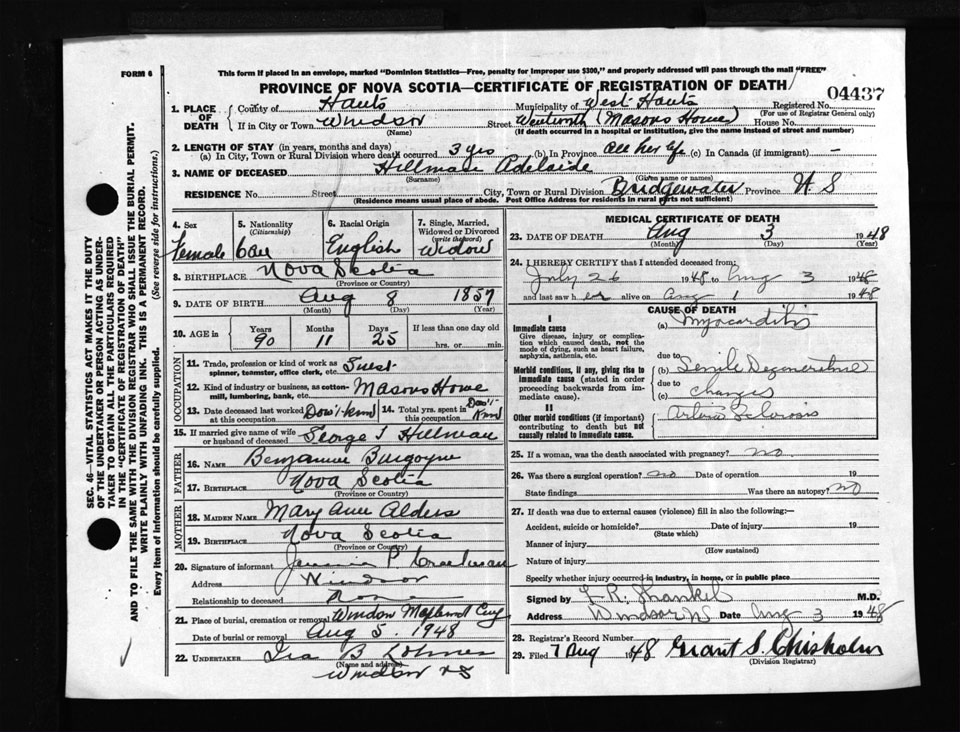 FORM 6
This form if placed in an envelope, marked "Dominion Statistics—Free, penalty for improper use $300," and properly addressed will pass through the mail "FREE"
PROVINCE OF NOVA SCOTIA—CERTIFICATE OF REGISTRATION OF DEATH
04437
1. PLACE OF DEATH
County of Hants Municipality of West Hants Registered No.
(For use of Registrar General only)
If in City or Town Windsor Street Wentworth (Masons Home) House No.
(Name) (If death occurred in a hospital or institution, give the name instead of street and number)
2. LENGTH OF STAY (in years, months and days)
(a) In City, Town or Rural Division where death occurred 3 yrs (b) In Province all her life (c) In Canada (if immigrant) —
3. NAME OF DECEASED Hillman Adelaide
(Surname) (Given name or names)
RESIDENCE No. Street City, Town or Rural Division Bridgewater Province N S
(Residence means usual place of abode. Post Office Address for residents in rural parts not sufficient)
SEC. 46—VITAL STATISTICS ACT MAKES IT THE DUTY
OF THE UNDERTAKER OR PERSON ACTING AS UNDER-
TAKER TO OBTAIN ALL THE PARTICULARS REQUIRED
IN THE "CERTIFICATE OF REGISTRATION OF DEATH"
AND TO FILE THE SAME WITH THE DIVISION REGISTRAR WHO SHALL ISSUE THE BURIAL PERMIT.
WRITE PLAINLY WITH UNFADING INK. THIS IS A PERMANENT RECORD.
Every item of information should be carefully supplied. (See reverse side for instructions.)
4. Sex
Female
5. Nationality
(Citizenship)
Can
6. Racial Origin
English
7. Single, Married,
Widowed or Divorced
(write the word)
Widow
8. BIRTHPLACE Nova Scotia
(Province or Country)
9. DATE OF BIRTH Aug 8 1857
(Month) (Day) (Year)
10. AGE in
Years Months Days If less than one day old
90 11 25 hrs. or min.
OCCUPATION
11. Trade, profession or kind of work as Guest
spinner, teamster, office clerk, etc.
12. Kind of industry or business, as cotton-
mill, lumbering, bank, etc. Masons Home
13. Date deceased last worked Don't-know
at this occupation
14. Total yrs. spent in Don't-Know
this occupation
15. If married give name of wife
or husband of deceased George T Hillman
FATHER
16. NAME Benjamine Burgoyne
17. BIRTHPLACE Nova Scotia
(Province or Country)
MOTHER
18. MAIDEN NAME Mary Ann Alders
19. BIRTHPLACE Nova Scotia
(Province or Country)
20. Signature of informant P
Address Windsor
Relationship to deceased None
21. Place of burial, cremation or removal Windsor
Date of burial or removal Aug 5. 1948
22. UNDERTAKER Ira B Lohnes
(Name and address)
Windsor NS
MEDICAL CERTIFICATE OF DEATH
23. DATE OF DEATH Aug 3 1948
(Month) (Day) (Year)
24. I HEREBY CERTIFY that I attended deceased from:
July 26 1948 to Aug 3 1948
and last saw her alive on Aug 1 1948
CAUSE OF DEATH
I
Immediate cause (a) Myocarditis
Give disease, injury or complica-
tion which caused death, not the
mode of dying, such as heart failure,
asphyxia, asthenia, etc. due to
Morbid conditions, if any, giving rise to (b) Senile Degenerative
immediate cause (stated in order due to
proceeding backwards from im- (c) changes
mediate cause).
II
Other morbid conditions (if important) Arterio Sclerosis
contributing to death but not
causally related to immediate cause.
25. If a woman, was the death associated with pregnancy? no.
26. Was there a surgical operation? no Date of operation 19
State findings Was there an autopsy? no
27. If death was due to external causes (violence) fill in also the following:—
Accident, suicide or homicide? Date of injury 19
(State which)
Manner of injury
(How sustained)
Nature of injury
Specify whether injury occurred in industry, in home, or in public place
Signed by R. Shankel M.D.
Address Windsor NS Date Aug 3 1948
28. Registrar's Record Number
29. Filed 7 Aug 1948 Grant S. Chisholm
(Division Registrar)